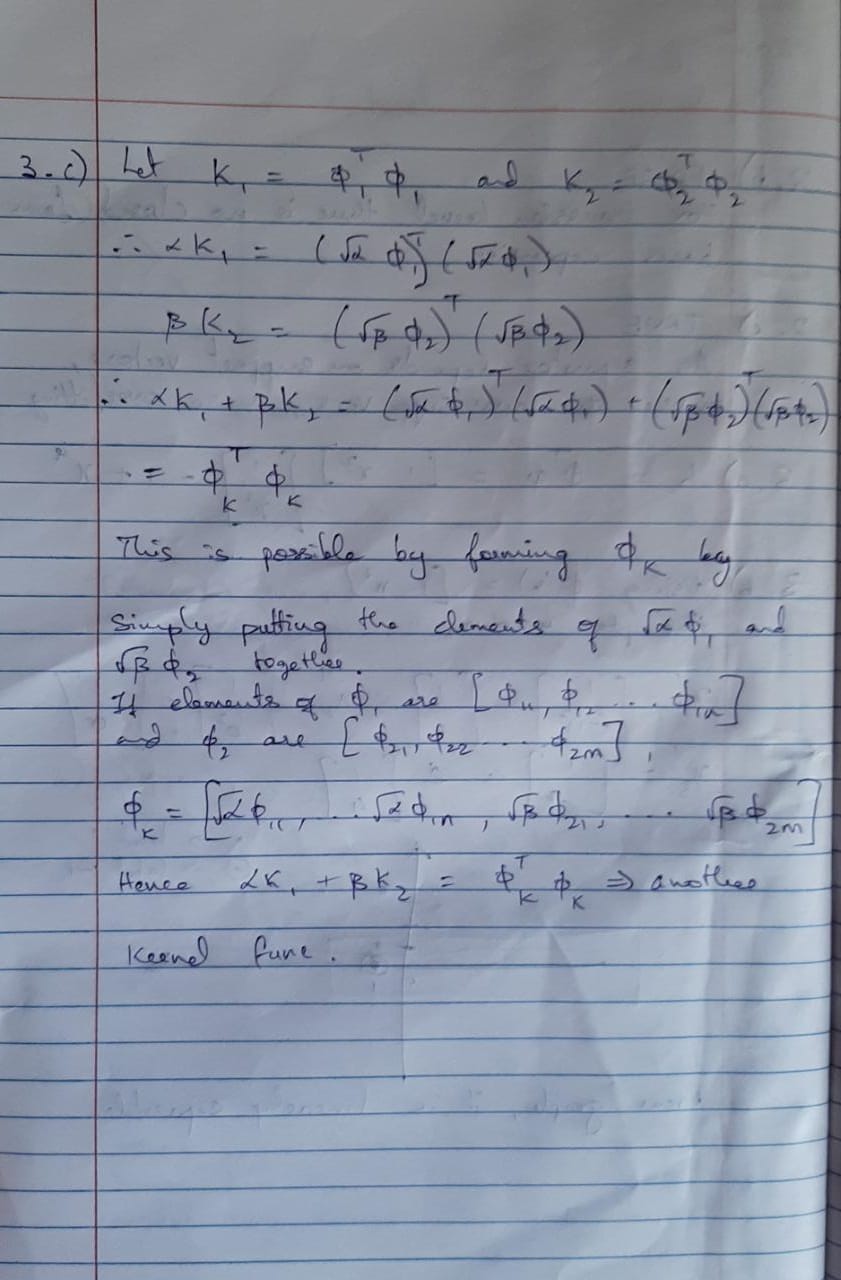 3. c) Let K₁ = Φ₁ᵀ Φ₁ and K₂ = Φ₂ᵀ Φ₂.
∴ αK₁ = (√α Φ₁)ᵀ (√α Φ₁)
βK₂ = (√β Φ₂)ᵀ (√β Φ₂)
∴ αK₁ + βK₂ = (√α Φ₁)ᵀ (√α Φ₁) + (√β Φ₂)ᵀ (√β Φ₂)
= Φ_Kᵀ Φ_K
This is possible by forming Φ_K by
simply putting the elements of √α Φ₁ and
√β Φ₂ together.
If elements of Φ₁ are [Φ₁₁, Φ₁₂ ... Φ₁ₙ]
and Φ₂ are [Φ₂₁, Φ₂₂ ... Φ₂ₘ],
Φ_K = [√α Φ₁₁, ... √α Φ₁ₙ, √β Φ₂₁, ... √β Φ₂ₘ]
Hence αK₁ + βK₂ = Φ_Kᵀ Φ_K ⇒ another
Kernel func.